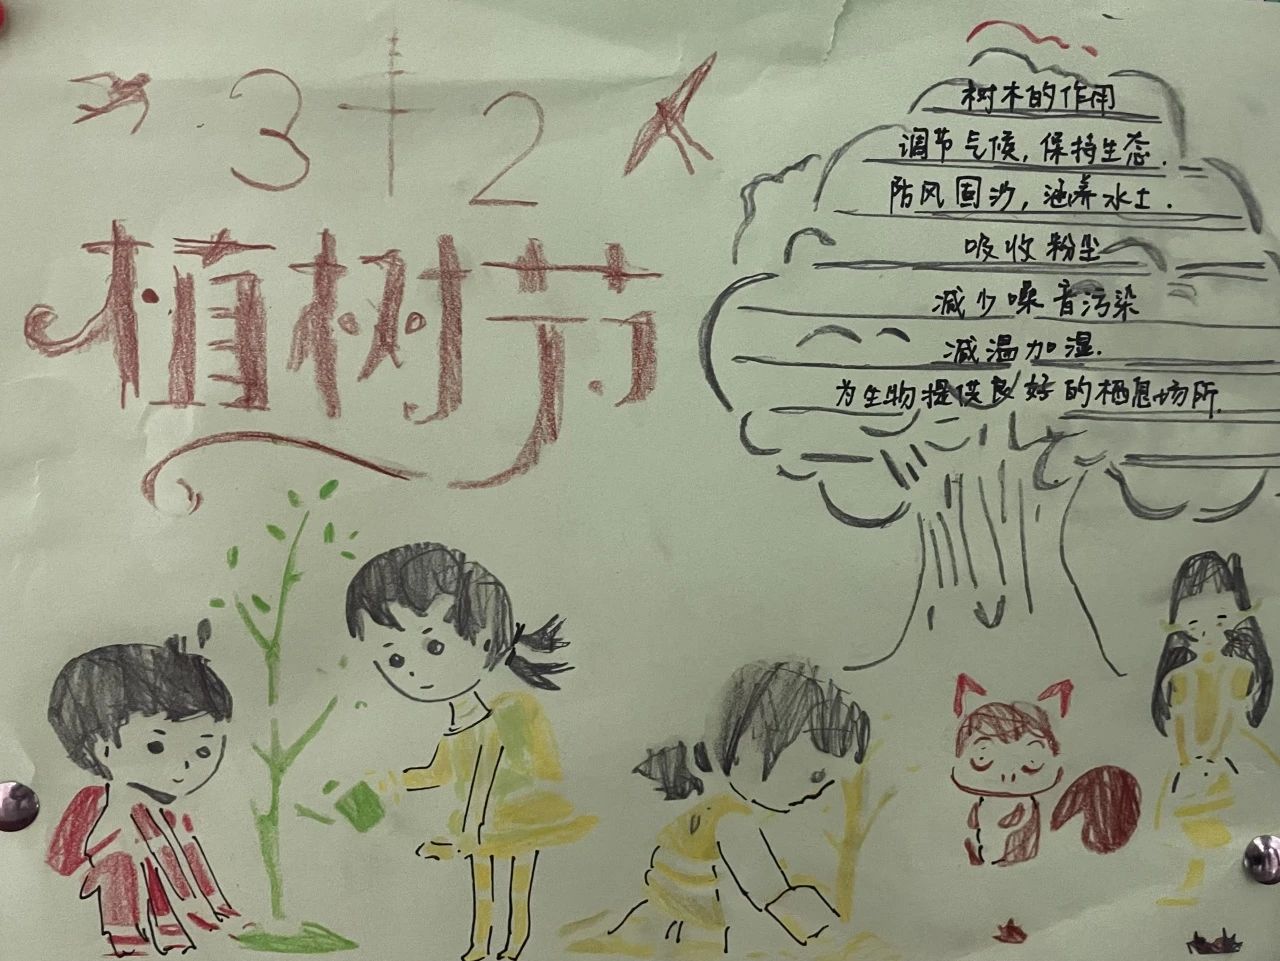 3十2
植树节
树木的作用
调节气候,保持生态.
防风固沙,涵养水土.
吸收粉尘
减少噪音污染
减温加湿.
为生物提供良好的栖息场所.